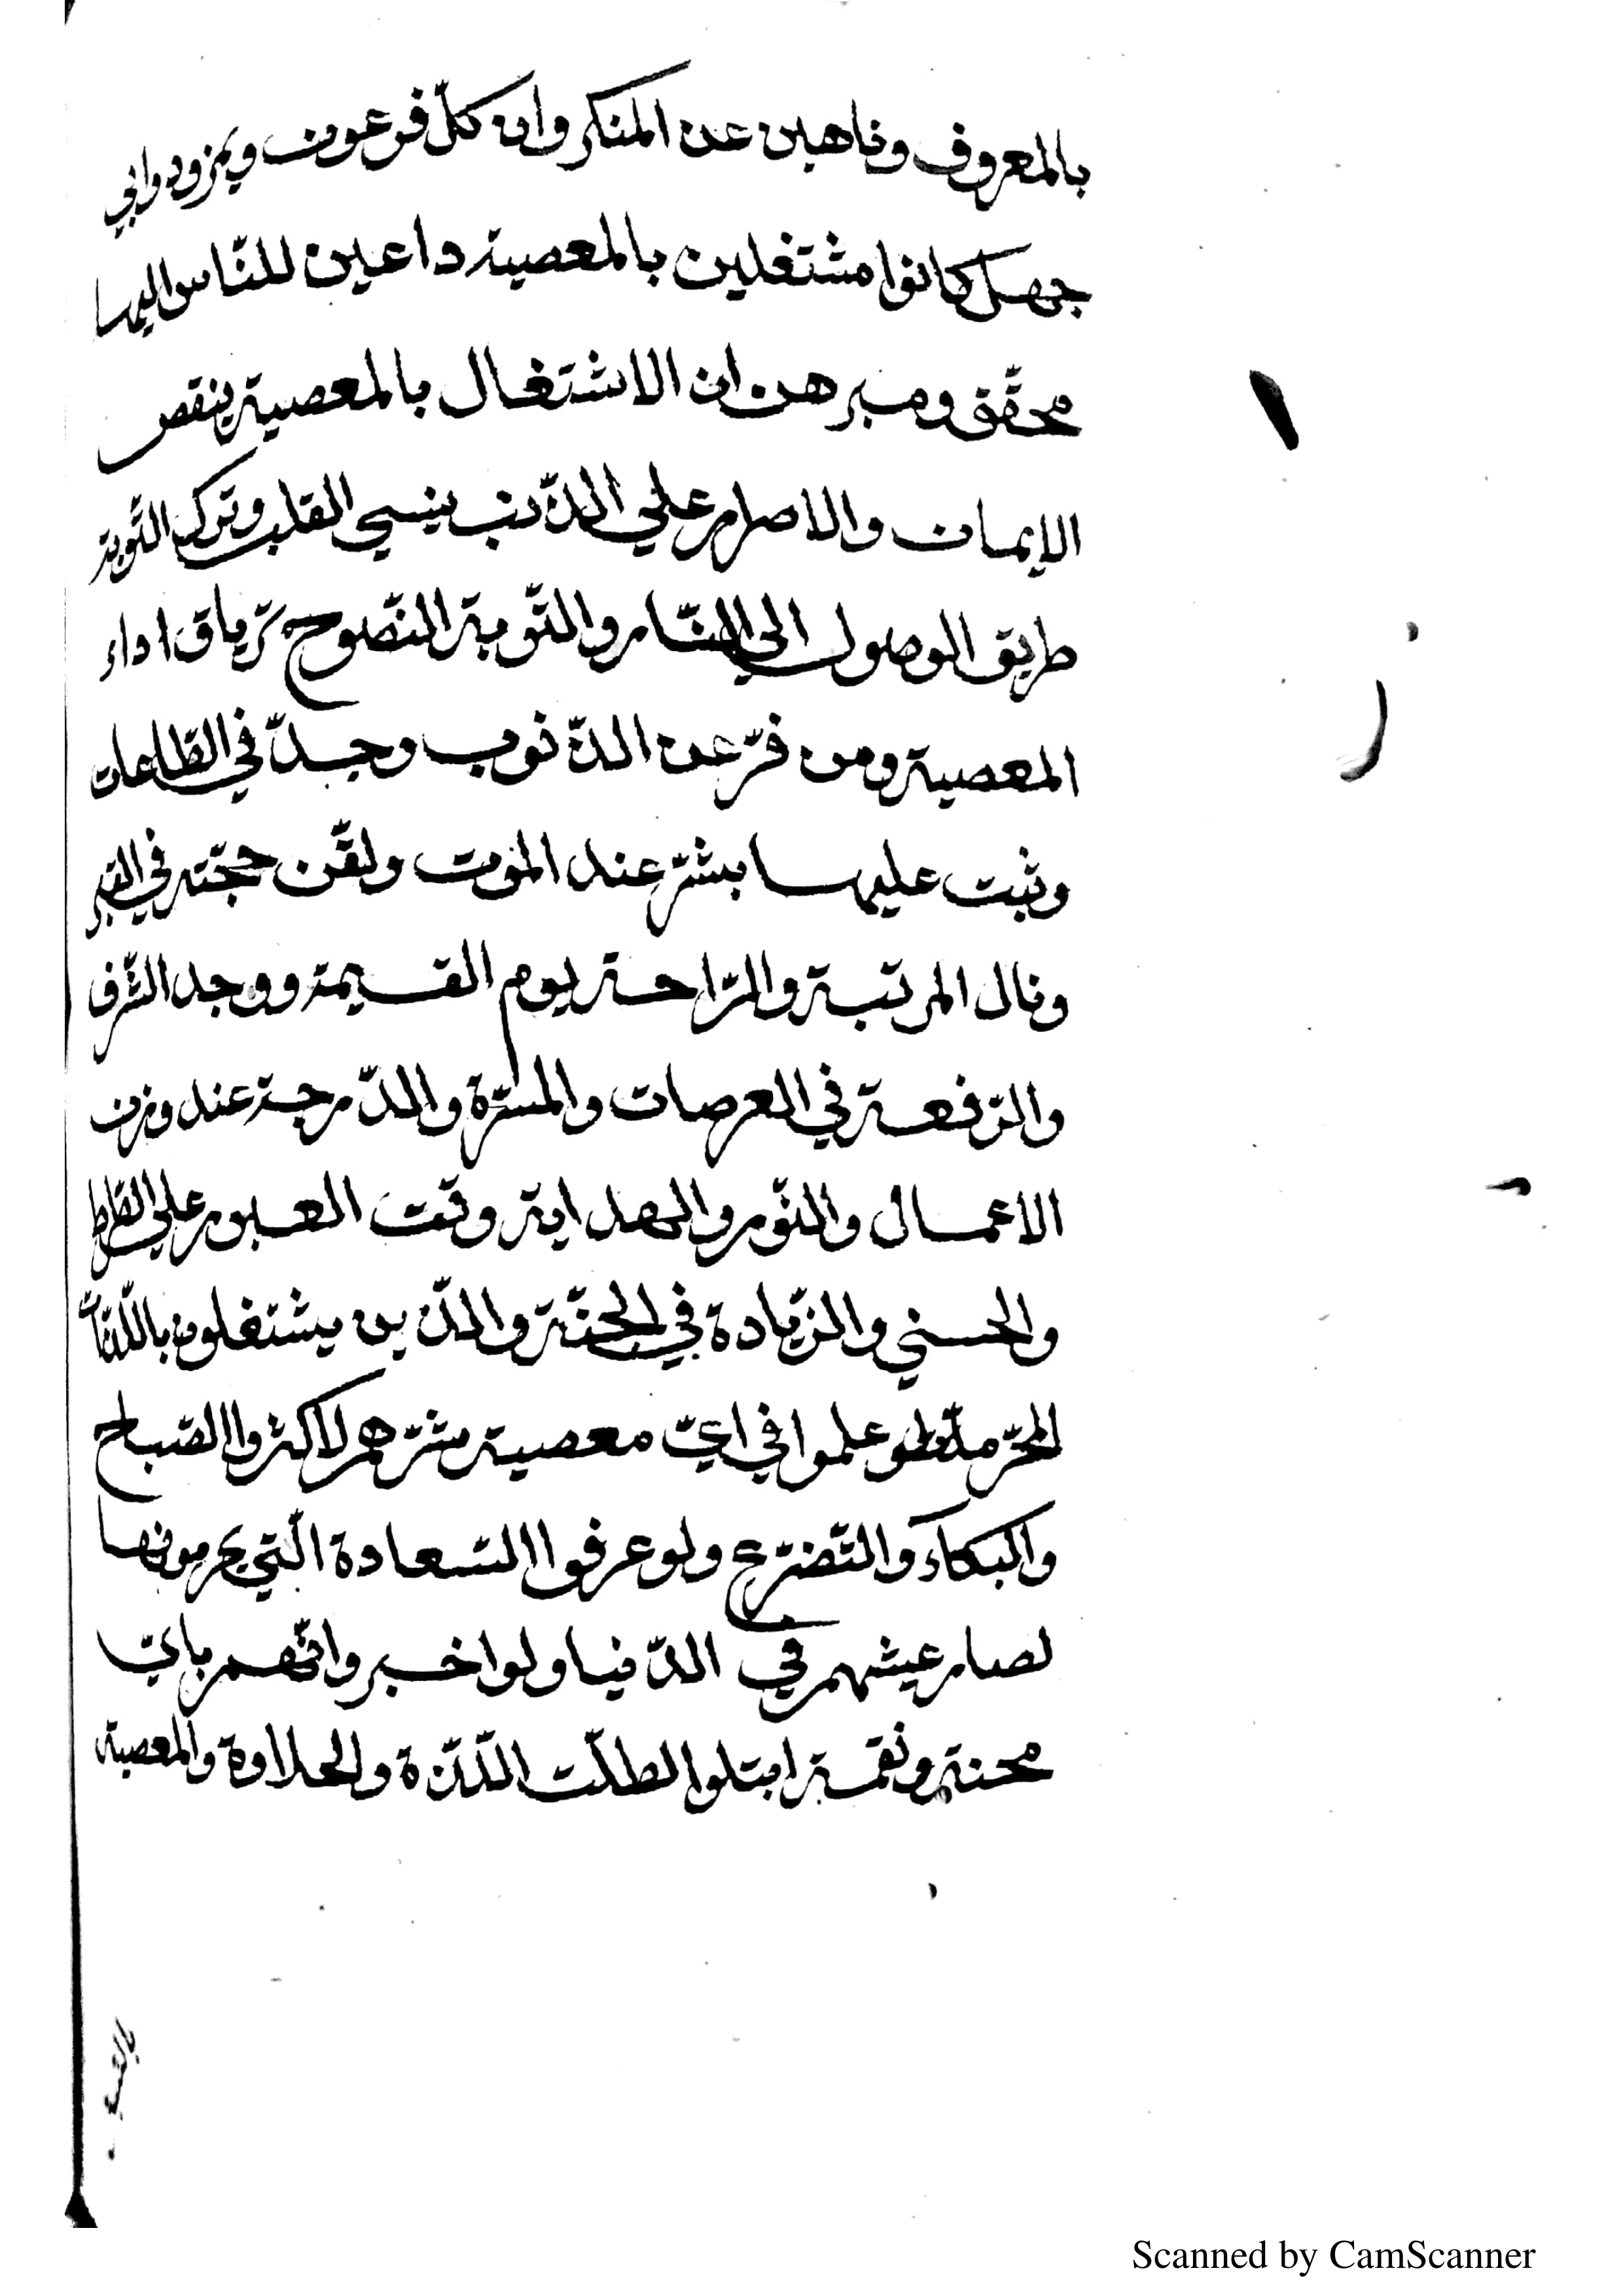 بالمعروف وناهين عن المنكر وان كلّ فرعون ونمرود وابي
جهل كانوا مشتغلين بالمعصية داعين للنّاس اليها
محقّق ومبرهن ان الاشتغال بالمعصية ينقص
الايمان والاصرار علي الذّنب ينسي القلب وترك التّوبة
طريق الوصول الي النّار والتّوبة النّصوح ترياق اداء
المعصية ومن فرّ عن الذّنوب وجدّ في الطّاعات
وثبت عليها بشّر عند الموت ولقّن حجّته في القبر
ونال المرتبة والرّاحة يوم القيمة ووجد الشّرف
والرّفعة في العرصات والمسرّة والدّرجة عند وزن
الاعمال والنّور والهداية وقت العبور علي الصّراط
والحسني والزّيادة في الجنّة والذّين يشتغلون باللّذّات
المحرّمة لو علموا في ايّ معصية شرّهم لاكثروا الصّياح
والبكاء والتّضرّع ولو عرفوا السّعادة الّتي يحرمونها
لصار عيشهم في الدّنيا ولو اخبروا انّهم بايّ
محنة ونقمة ابتلوا لطلّت اللّذّة والحلاوة والمعصية
Scanned by CamScanner